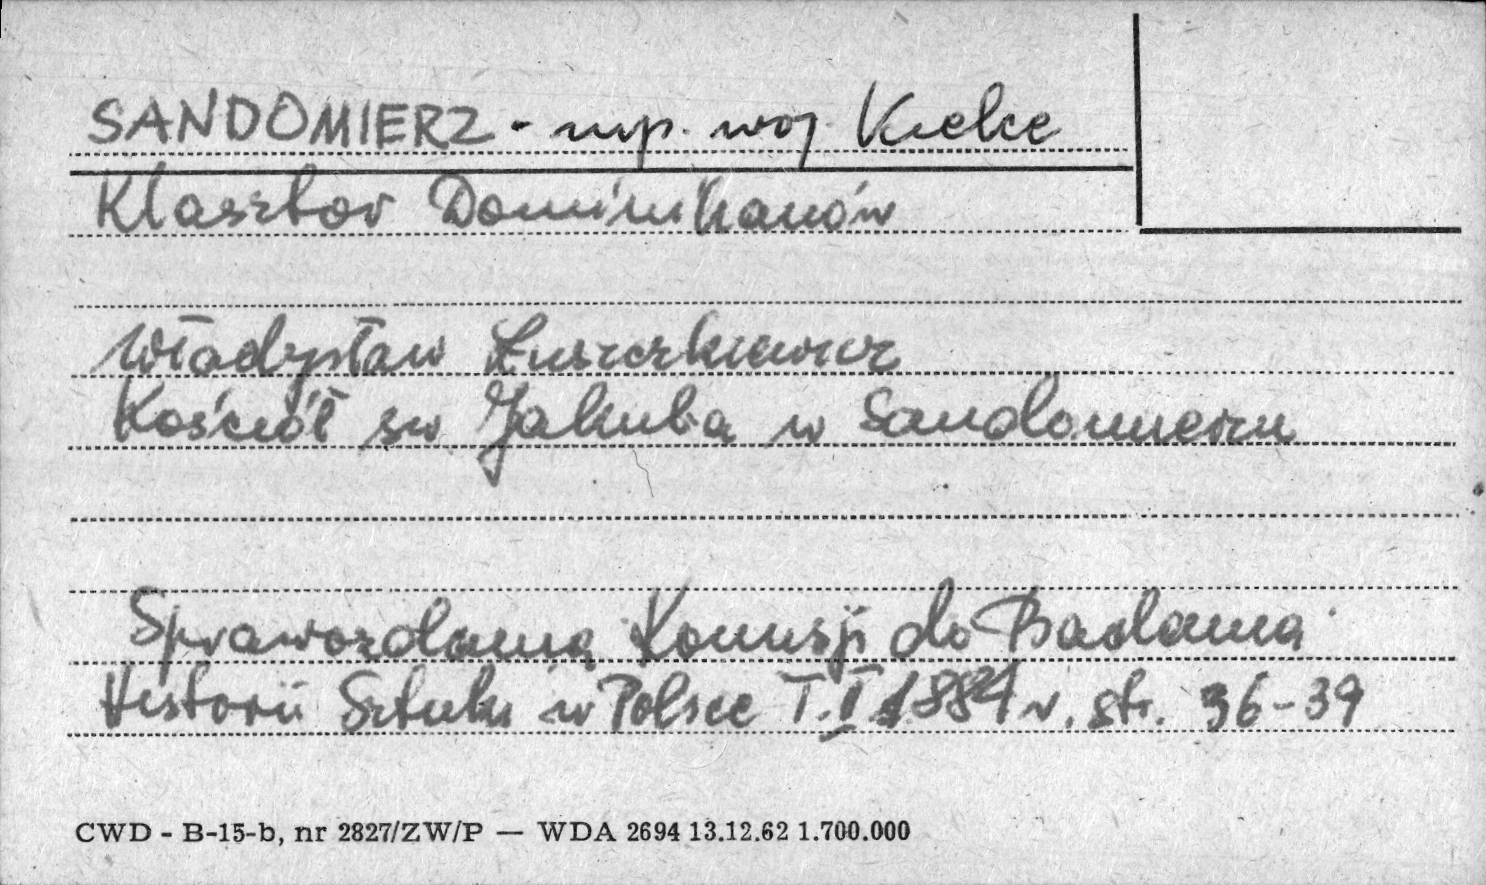 SANDOMIERZ - mp. woj. Kielce
Klasztor Dominikanów
Władysław Łuszczkiewicz
Kościół św Jakuba w Sandomierzu
Sprawozdania Komisji do Badania
Historii Sztuki w Polsce T. II 1884 r. str. 36-39
CWD - B-15-b, nr 2827/ZW/P — WDA 2694 13.12.62 1.700.000